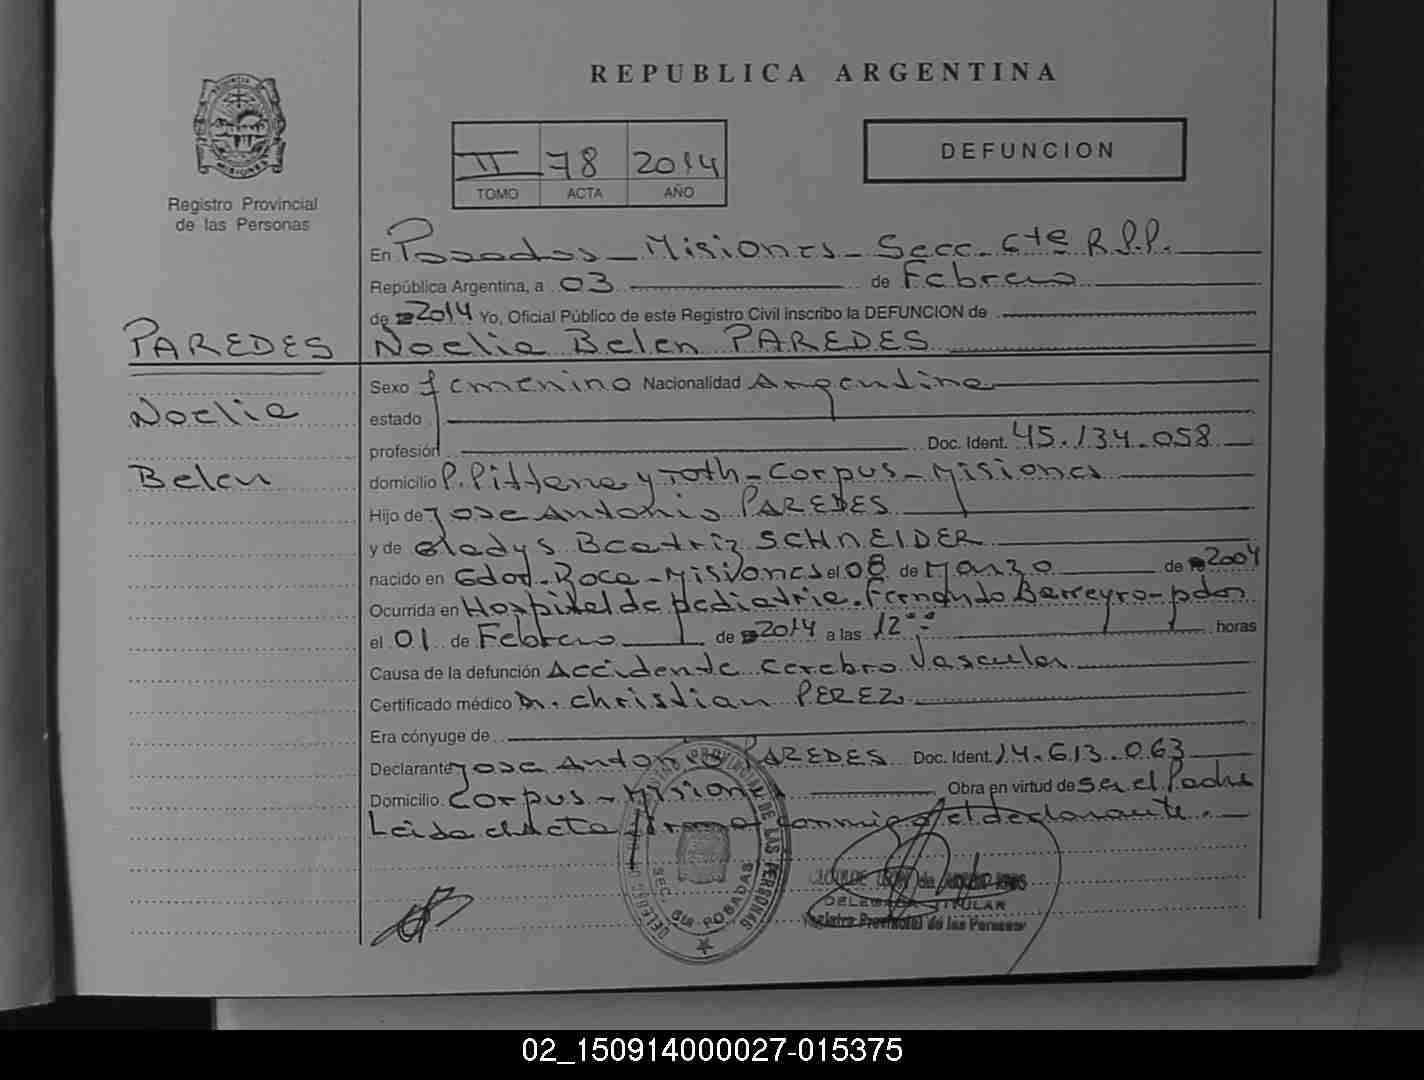 REPUBLICA ARGENTINA
Registro Provincial
de las Personas
II 78 2014
TOMO ACTA AÑO
DEFUNCION
En Posadas - Misiones - Secc. 6te R.P.P.
República Argentina, a 03 de Febrero
de 2014 Yo, Oficial Público de este Registro Civil inscribo la DEFUNCION de
PAREDES
Noelia Belen PAREDES
Sexo femenino Nacionalidad Argentina
Noelia
estado
profesión Doc. Ident. 45.134.058
Belen
domicilio P. y Roth - Corpus - Misiones
Hijo de Jose Antonio PAREDES
y de Gladys Beatriz SCHNEIDER
nacido en Gdor. Roca - Misiones el 08 de Marzo de 2004
Ocurrida en Hospital de pediatria. Fernando Barreyro - pdas
el 01 de Febrero de 2014 a las 12 horas
Causa de la defunción Accidente cerebro Vascular
Certificado médico Dr. Christian PEREZ
Era cónyuge de
Declarante Jose Antonio PAREDES Doc. Ident. 14.613.063
Domicilio Corpus - Misiones Obra en virtud de ser el Padre
Leida el Acta firma conmigo el declarante.
DELEGADA TITULAR
Registro Provincial de las Personas
02_150914000027-015375